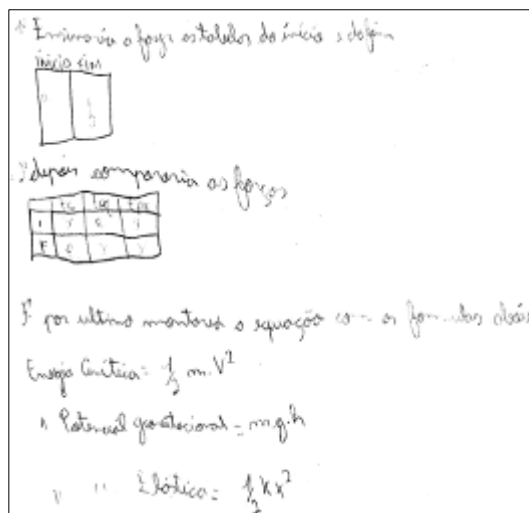 Ensinaria a fazer as tabelas do início e do fim
início fim
depois compararia as forças
I
F
E por ultimo montaria a equação com as formulas
Energia Cinética = 1/2 m.V²
" Potencial gravitacional = m.g.h
" " Elástica = 1/2 Kx²